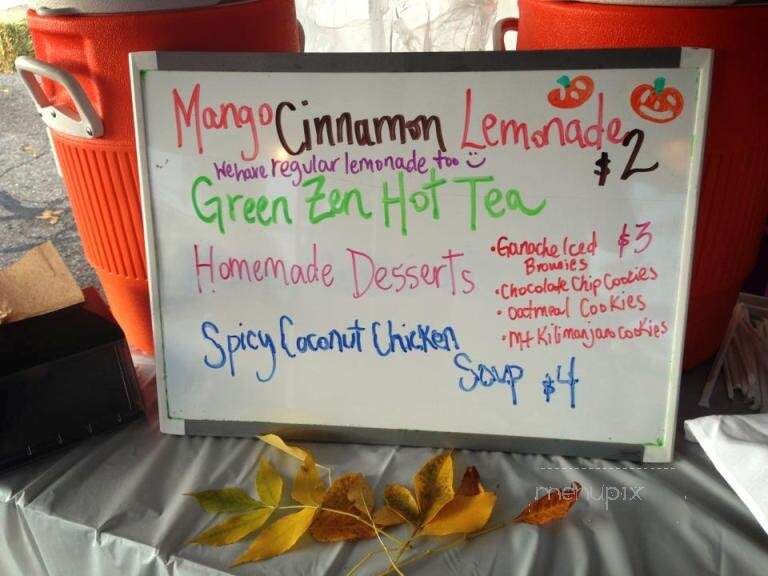 Mango Cinnamon Lemonade
$2
We have regular lemonade too
Green Zen Hot Tea
Homemade Desserts
• Ganache Iced Brownies $3
• Chocolate Chip Cookies
• Oatmeal Cookies
• Mt Kilimanjaro Cookies
Spicy Coconut Chicken
Soup $4
menupix